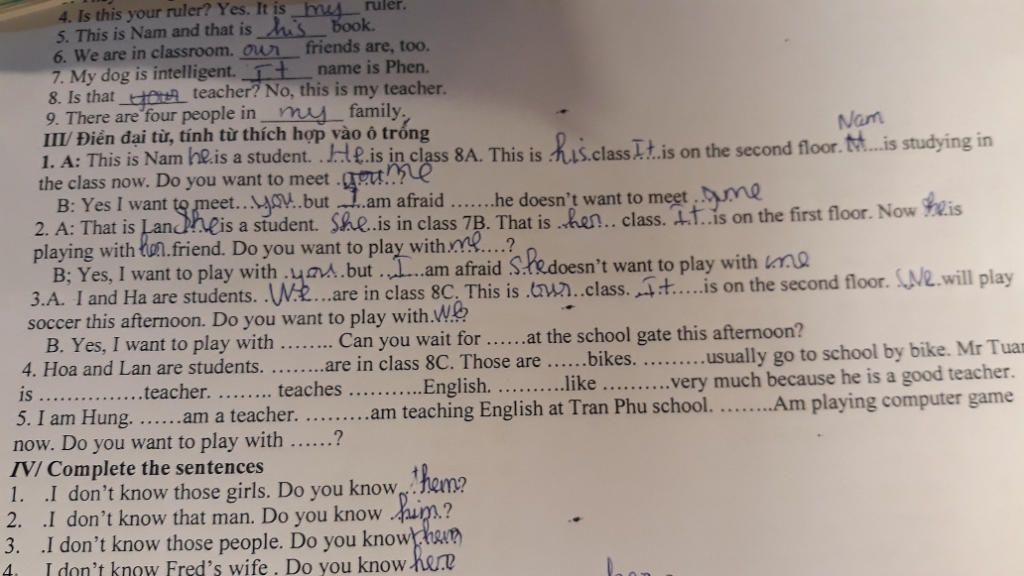 4. Is this your ruler? Yes. It is my ruler.
5. This is Nam and that is his book.
6. We are in classroom. our friends are, too.
7. My dog is intelligent. It name is Phen.
8. Is that your teacher? No, this is my teacher.
9. There are four people in my family.
III/ Điền đại từ, tính từ thích hợp vào ô trống
Nam
1. A: This is Nam he is a student. ..He.is in class 8A. This is his.class It.is on the second floor. ...is studying in
the class now. Do you want to meet .me..?
B: Yes I want to meet...you.but ..I..am afraid .......he doesn't want to meet ..me
2. A: That is Lan she is a student. She..is in class 7B. That is ..her.. class. .It..is on the first floor. Now he is
playing with her.friend. Do you want to play with.me....?
B; Yes, I want to play with .you..but ..I...am afraid She doesn't want to play with me
3.A. I and Ha are students. .We...are in class 8C. This is .our..class. .It.....is on the second floor. .We.will play
soccer this afternoon. Do you want to play with.We?
B. Yes, I want to play with ........ Can you wait for ......at the school gate this afternoon?
4. Hoa and Lan are students. ........are in class 8C. Those are ......bikes. ..........usually go to school by bike. Mr Tuan
is ...............teacher. ........ teaches ...........English. ..........like ..........very much because he is a good teacher.
5. I am Hung. ......am a teacher. ..........am teaching English at Tran Phu school. ........Am playing computer game
now. Do you want to play with ......?
IV/ Complete the sentences
1. .I don't know those girls. Do you know .them?
2. .I don't know that man. Do you know .him.?
3. .I don't know those people. Do you know them
4. I don't know Fred's wife . Do you know here